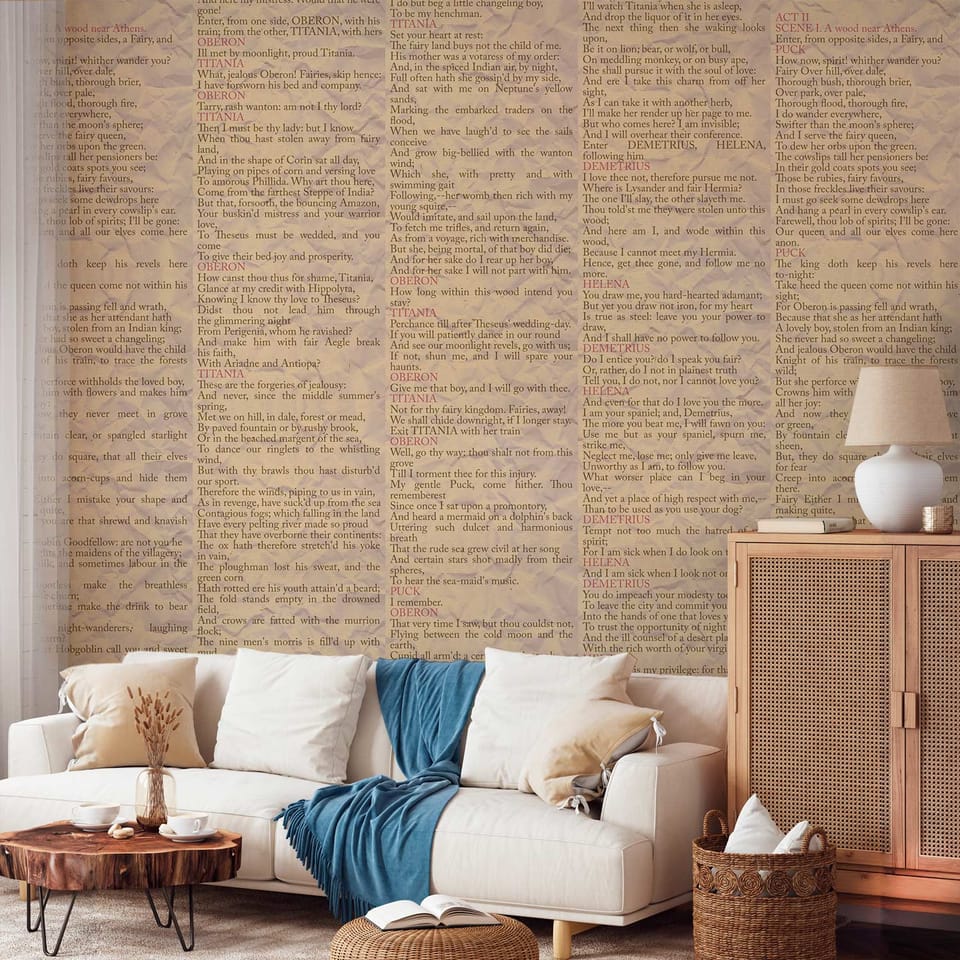 I. A wood near Athens.
opposite sides, a Fairy, and
spirit! whither wander you?
hill, over dale,
bush, thorough brier,
park, over pale,
flood, thorough fire,
wander everywhere,
than the moon's sphere;
serve the fairy queen,
her orbs upon the green.
The cowslips tall her pensioners be:
gold coats spots you see;
be rubies, fairy favours,
freckles live their savours:
go seek some dewdrops here
hang a pearl in every cowslip's ear.
lob of spirits; I'll be gone:
and all our elves come here
doth keep his revels here
the queen come not within his
is passing fell and wrath,
that she as her attendant hath
boy, stolen from an Indian king;
had so sweet a changeling;
Oberon would have the child
of his train, to trace the forests
perforce withholds the loved boy,
him with flowers and makes him
they never meet in grove
fountain clear, or spangled starlight
do square, that all their elves
into acorn-cups and hide them
Either I mistake your shape and
you are that shrewd and knavish
Goodfellow: are not you he
the maidens of the villagery;
milk, and sometimes labour in the
bootless make the breathless
churn;
sometime make the drink to bear
night-wanderers, laughing
Hobgoblin call you and sweet
gone!
Enter, from one side, OBERON, with his
train; from the other, TITANIA, with hers
OBERON
Ill met by moonlight, proud Titania.
TITANIA
What, jealous Oberon! Fairies, skip hence:
I have forsworn his bed and company.
OBERON
Tarry, rash wanton: am not I thy lord?
TITANIA
Then I must be thy lady: but I know
When thou hast stolen away from fairy
land,
And in the shape of Corin sat all day,
Playing on pipes of corn and versing love
To amorous Phillida. Why art thou here,
Come from the farthest Steppe of India?
But that, forsooth, the bouncing Amazon,
Your buskin'd mistress and your warrior
love,
To Theseus must be wedded, and you
come
To give their bed joy and prosperity.
OBERON
How canst thou thus for shame, Titania,
Glance at my credit with Hippolyta,
Knowing I know thy love to Theseus?
Didst thou not lead him through
the glimmering night
From Perigenia, whom he ravished?
And make him with fair Aegle break
his faith,
With Ariadne and Antiopa?
TITANIA
These are the forgeries of jealousy:
And never, since the middle summer's
spring,
Met we on hill, in dale, forest or mead,
By paved fountain or by rushy brook,
Or in the beached margent of the sea,
To dance our ringlets to the whistling
wind,
But with thy brawls thou hast disturb'd
our sport.
Therefore the winds, piping to us in vain,
As in revenge, have suck'd up from the sea
Contagious fogs; which falling in the land
Have every pelting river made so proud
That they have overborne their continents:
The ox hath therefore stretch'd his yoke
in vain,
The ploughman lost his sweat, and the
green corn
Hath rotted ere his youth attain'd a beard;
The fold stands empty in the drowned
field,
And crows are fatted with the murrion
flock;
The nine men's morris is fill'd up with
mud,
I do but beg a little changeling boy,
To be my henchman.
TITANIA
Set your heart at rest:
The fairy land buys not the child of me.
His mother was a votaress of my order:
And, in the spiced Indian air, by night,
Full often hath she gossip'd by my side,
And sat with me on Neptune's yellow
sands,
Marking the embarked traders on the
flood,
When we have laugh'd to see the sails
conceive
And grow big-bellied with the wanton
wind;
Which she, with pretty and with
swimming gait
Following,--her womb then rich with my
young squire,--
Would imitate, and sail upon the land,
To fetch me trifles, and return again,
As from a voyage, rich with merchandise.
But she, being mortal, of that boy did die;
And for her sake do I rear up her boy,
And for her sake I will not part with him.
OBERON
How long within this wood intend you
stay?
TITANIA
Perchance till after Theseus' wedding-day.
If you will patiently dance in our round
And see our moonlight revels, go with us;
If not, shun me, and I will spare your
haunts.
OBERON
Give me that boy, and I will go with thee.
TITANIA
Not for thy fairy kingdom. Fairies, away!
We shall chide downright, if I longer stay.
Exit TITANIA with her train
OBERON
Well, go thy way: thou shalt not from this
grove
Till I torment thee for this injury.
My gentle Puck, come hither. Thou
rememberest
Since once I sat upon a promontory,
And heard a mermaid on a dolphin's back
Uttering such dulcet and harmonious
breath
That the rude sea grew civil at her song
And certain stars shot madly from their
spheres,
To hear the sea-maid's music.
PUCK
I remember.
OBERON
That very time I saw, but thou couldst not,
Flying between the cold moon and the
earth,
Cupid all arm'd: a
I'll watch Titania when she is asleep,
And drop the liquor of it in her eyes.
The next thing then she waking looks
upon,
Be it on lion; bear, or wolf, or bull,
On meddling monkey, or on busy ape,
She shall pursue it with the soul of love:
And ere I take this charm from off her
sight,
As I can take it with another herb,
I'll make her render up her page to me.
But who comes here? I am invisible;
And I will overhear their conference.
Enter DEMETRIUS, HELENA,
following him
DEMETRIUS
I love thee not, therefore pursue me not.
Where is Lysander and fair Hermia?
The one I'll slay, the other slayeth me.
Thou told'st me they were stolen unto this
wood;
And here am I, and wode within this
wood,
Because I cannot meet my Hermia.
Hence, get thee gone, and follow me no
more.
HELENA
You draw me, you hard-hearted adamant;
But yet you draw not iron, for my heart
Is true as steel: leave you your power to
draw,
And I shall have no power to follow you.
DEMETRIUS
Do I entice you? do I speak you fair?
Or, rather, do I not in plainest truth
Tell you, I do not, nor I cannot love you?
HELENA
And even for that do I love you the more.
I am your spaniel; and, Demetrius,
The more you beat me, I will fawn on you:
Use me but as your spaniel, spurn me,
strike me,
Neglect me, lose me; only give me leave,
Unworthy as I am, to follow you.
What worser place can I beg in your
love,--
And yet a place of high respect with me,--
Than to be used as you use your dog?
DEMETRIUS
Tempt not too much the hatred of
spirit;
For I am sick when I do look on
HELENA
And I am sick when I look not on
DEMETRIUS
You do impeach your modesty too
To leave the city and commit
Into the hands of one that loves
To trust the opportunity of night
And the ill counsel of a desert
With the rich worth of your
is my privilege: for
ACT II
SCENE I. A wood near Athens.
Enter, from opposite sides, a Fairy, and
PUCK
How now, spirit! whither wander you?
Fairy Over hill, over dale,
Thorough bush, thorough brier,
Over park, over pale,
Thorough flood, thorough fire,
I do wander everywhere,
Swifter than the moon's sphere;
And I serve the fairy queen,
To dew her orbs upon the green.
The cowslips tall her pensioners be:
In their gold coats spots you see;
Those be rubies, fairy favours,
In those freckles live their savours:
I must go seek some dewdrops here
And hang a pearl in every cowslip's ear.
Farewell, thou lob of spirits; I'll be gone:
Our queen and all our elves come here
anon.
PUCK
The king doth keep his revels here
to-night:
Take heed the queen come not within his
sight;
For Oberon is passing fell and wrath,
Because that she as her attendant hath
A lovely boy, stolen from an Indian king;
She never had so sweet a changeling;
And jealous Oberon would have the child
Knight of his train, to trace the forests
wild;
But she perforce
Crowns him
all her joy:
And now they
or green,
By fountain
sheen,
But, they do square, that all their elves
for fear
Creep into
there.
Fairy Either I
making quite,